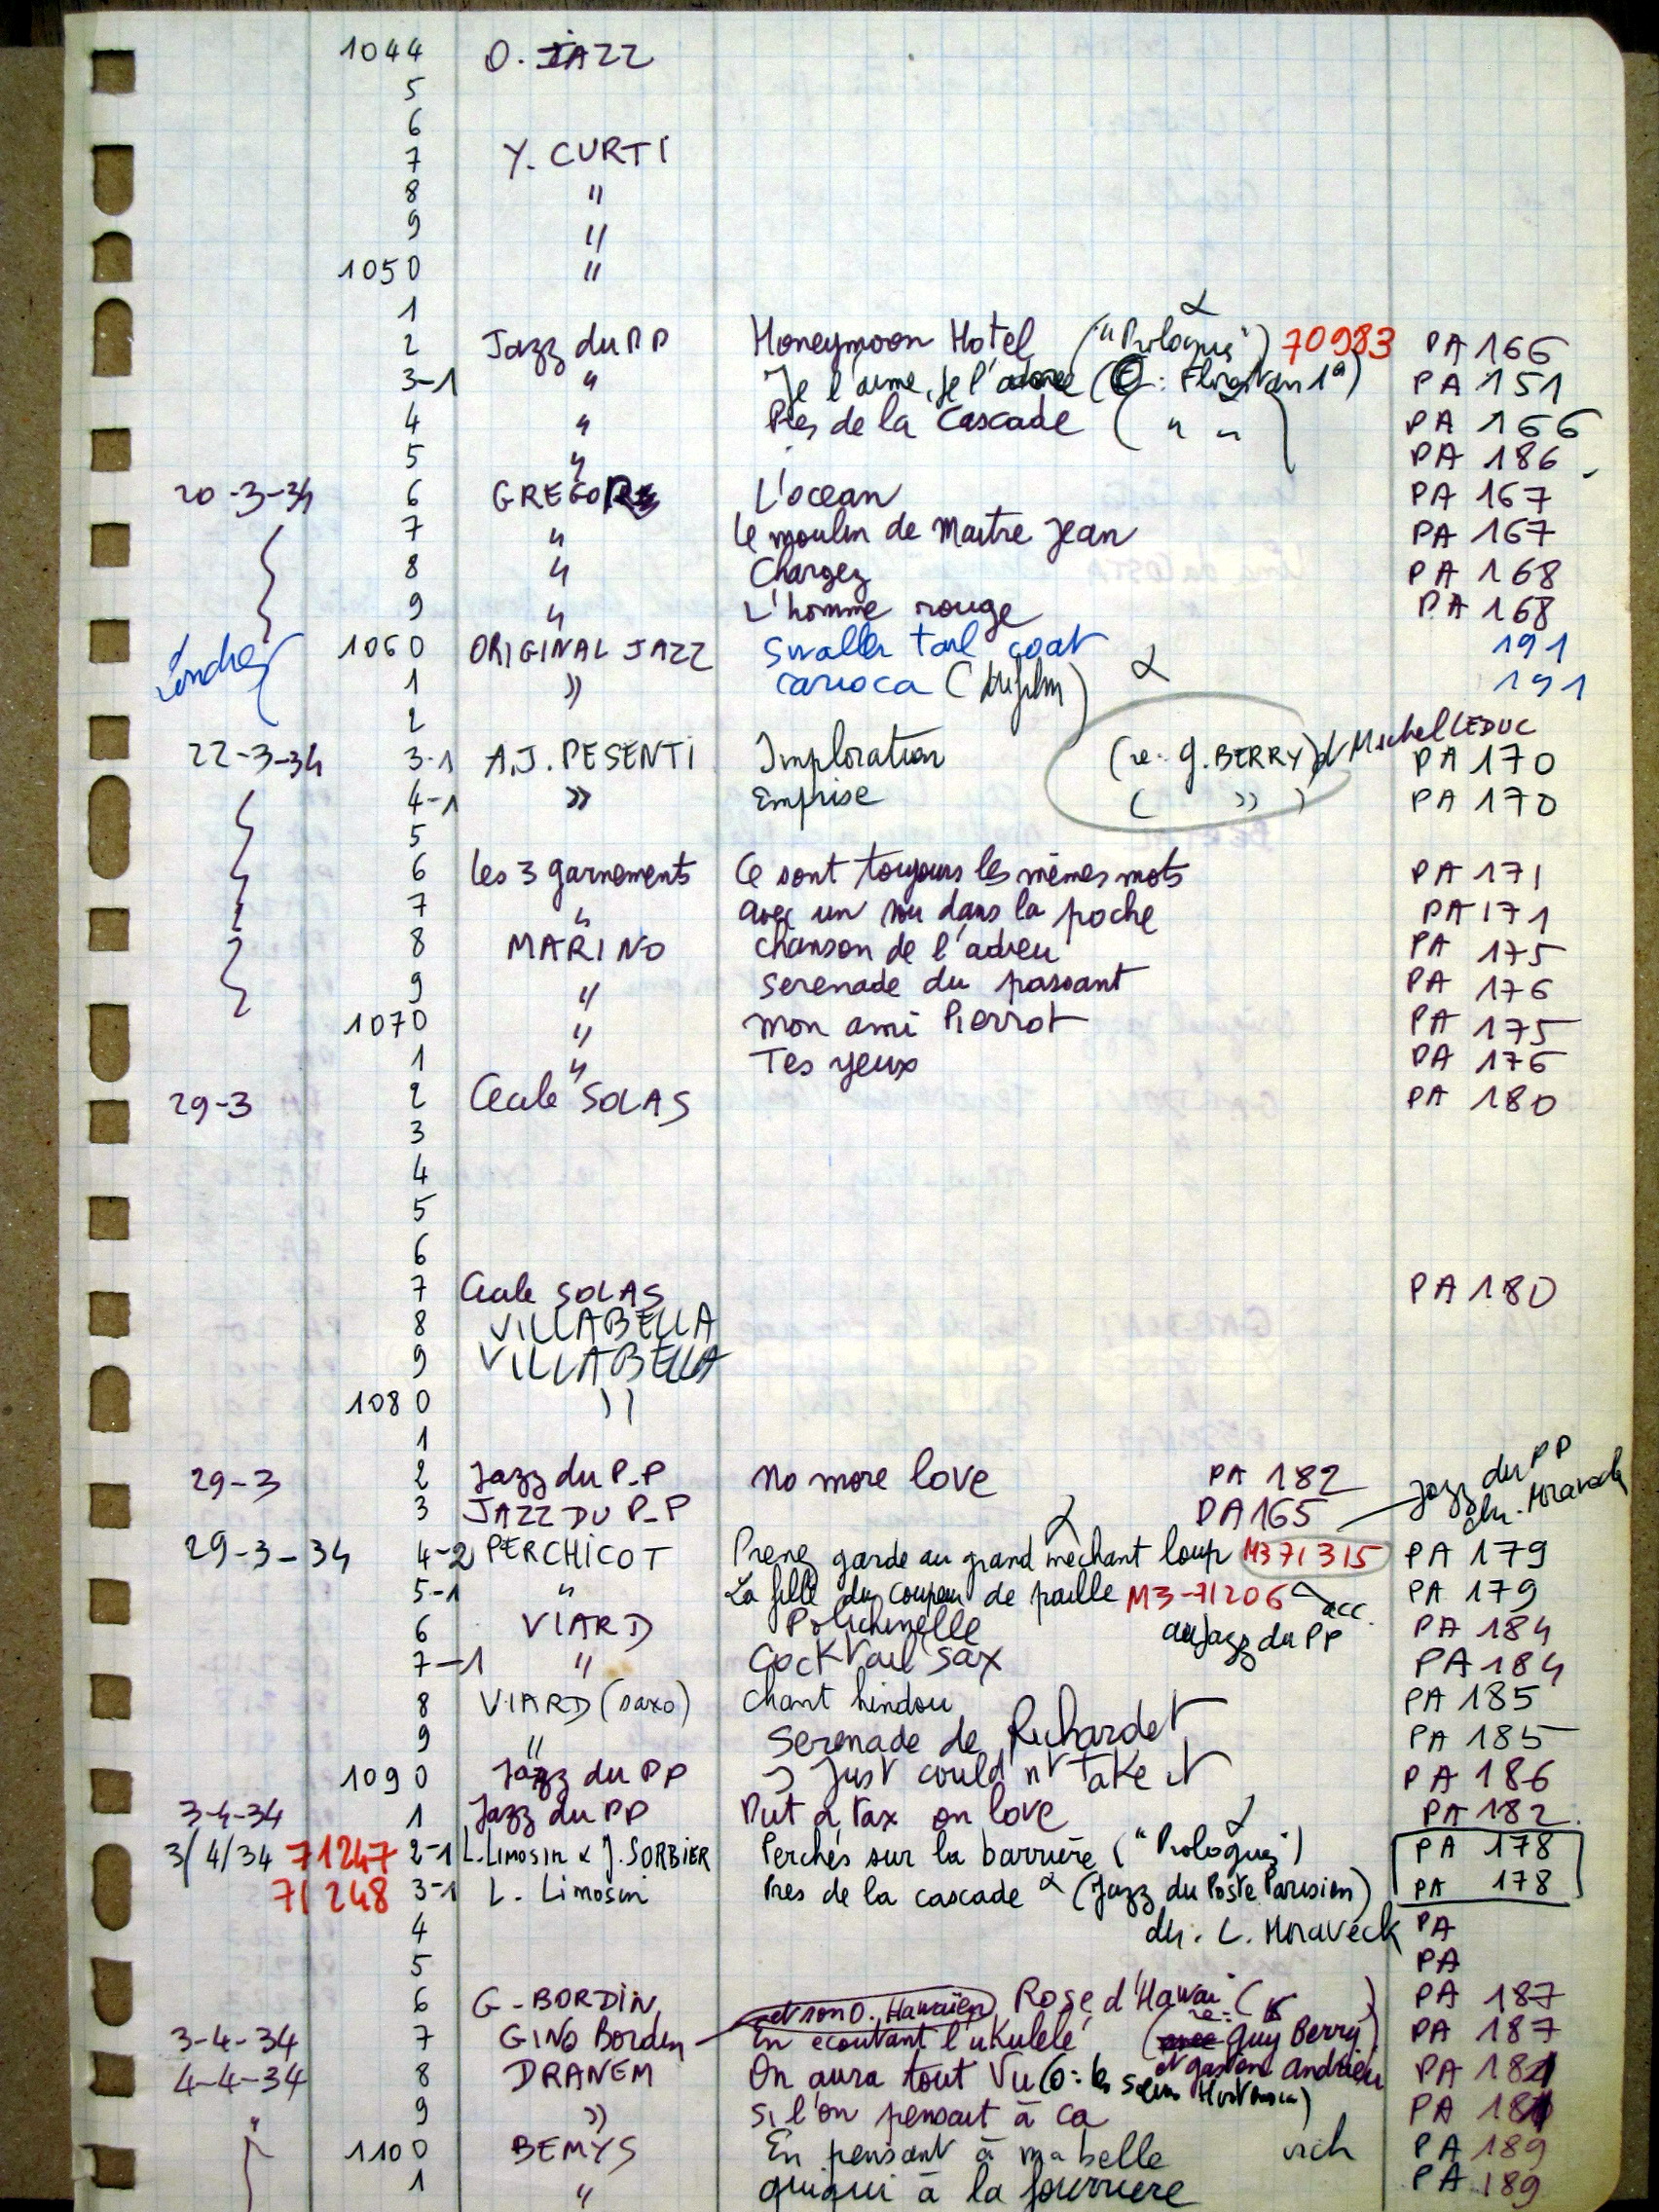 1044 O. JAZZ
5
6
7 Y. CURTI
8 "
9 "
1050 "
1
2 Jazz du PP Honeymoon Hotel ("Prologues") α 70983 PA 166
3-1 " Je l'aime, je l'adore ( : Florestan 1er) PA 151
4 " Pres de la Cascade ( " " ) PA 166
5 " PA 186
20-3-34 6 GREGOR L'ocean PA 167
7 " Le moulin de Maitre Jean PA 167
8 " Chargez PA 168
9 " L'homme rouge PA 168
Londres 1060 ORIGINAL JAZZ Swaller tail coat 191
1 " carioca (du film) α 191
2
22-3-34 3-1 A.J. PESENTI Imploration (re: G. BERRY) d Michel LEDUC PA 170
4-1 " Emprise ( " ) PA 170
5
6 Les 3 garnements Ce sont toujours les mêmes mots PA 171
7 " avec un sou dans la poche PA 171
8 MARINO chanson de l'adieu PA 175
9 " serenade du passant PA 176
1070 " mon ami Pierrot PA 175
1 " Tes yeux PA 176
29-3 2 Cecile SOLAS PA 180
3
4
5
6
7 Cecile SOLAS PA 180
8 VILLABELLA
9 VILLABELLA
1080 "
1
29-3 2 Jazz du P-P No more love PA 182
3 JAZZ DU P-P PA 165 Jazz du PP
dir. Moraveck
29-3-34 4-2 PERCHICOT Prenez garde au grand méchant loup α M3 71315 PA 179
5-1 " La fille du coupeur de paille M3-71206 acc. PA 179
au Jazz du PP
6 VIARD Polichinelle PA 184
7-1 " Cocktail sax PA 184
8 VIARD (saxo) chant hindou PA 185
9 " Serenade de Richardet PA 185
1090 Jazz du PP I just couldn't take it PA 186
3-4-34 1 Jazz du PP Put a tax on love PA 182
3/4/34 71247 2-1 L. Limosin & J. SORBIER Perchés sur la barrière ("Prologues") α PA 178
71248 3-1 L. Limosin Pres de la cascade α (Jazz du Poste Parisien) PA 178
4 dir. L. Moraveck PA
5 PA
6 G. BORDIN et son O. Hawaïen Rose d'Hawaï ( " ) PA 187
3-4-34 7 GINO Bordin En ecoutant l'ukulele (re: Guy Berry) PA 187
et gaston Andrieu
4-4-34 8 DRANEM On aura tout Vu (o: les soeurs Hortensia) PA 181
" 9 " si l'on pensait à ca PA 181
1100 BEMYS En pensant à ma belle vich PA 189
1 " quiqui à la fourriere PA 189